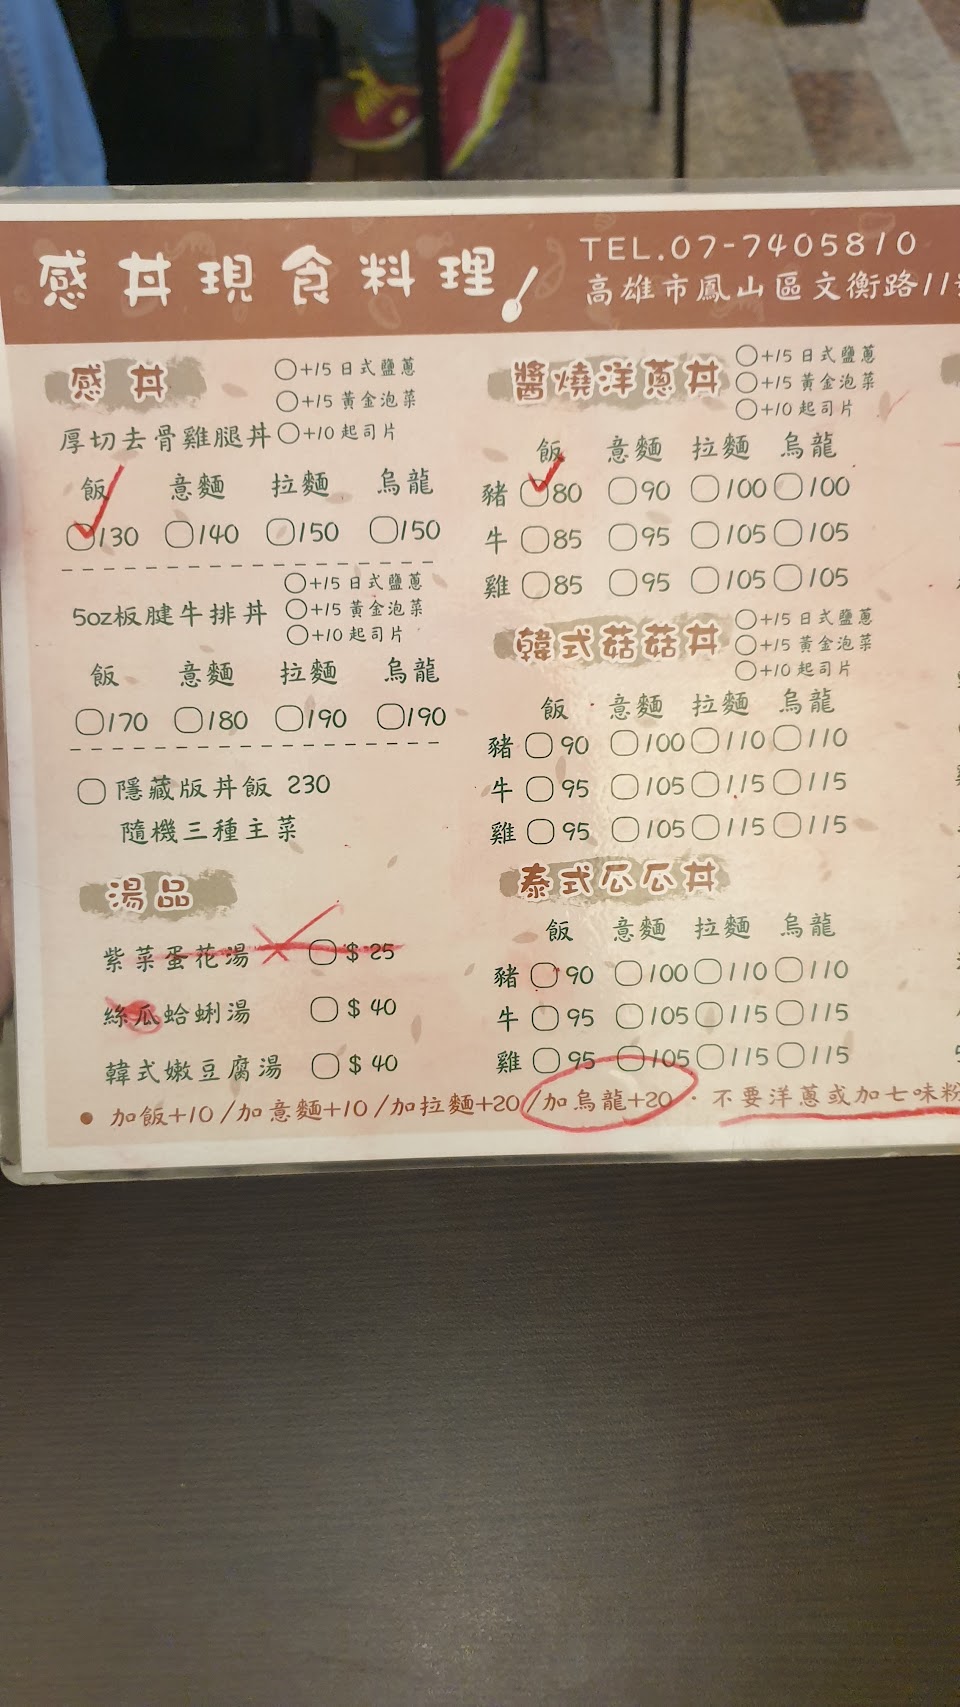 感丼現食料理
TEL.07-7405810
高雄市鳳山區文衡路11號
感丼
+15 日式鹽蔥
+15 黃金泡菜
厚切去骨雞腿丼 +10 起司片
飯 意麵 拉麵 烏龍
130 140 150 150
5oz板腱牛排丼
+15 日式鹽蔥
+15 黃金泡菜
+10 起司片
飯 意麵 拉麵 烏龍
170 180 190 190
隱藏版丼飯 230
隨機三種主菜
湯品
紫菜蛋花湯 $25
絲瓜蛤蜊湯 $40
韓式嫩豆腐湯 $40
醬燒洋蔥丼
+15 日式鹽蔥
+15 黃金泡菜
+10 起司片
飯 意麵 拉麵 烏龍
豬 80 90 100 100
牛 85 95 105 105
雞 85 95 105 105
韓式菇菇丼
+15 日式鹽蔥
+15 黃金泡菜
+10 起司片
飯 意麵 拉麵 烏龍
豬 90 100 110 110
牛 95 105 115 115
雞 95 105 115 115
泰式瓜瓜丼
飯 意麵 拉麵 烏龍
豬 90 100 110 110
牛 95 105 115 115
雞 95 105 115 115
• 加飯+10/加意麵+10/加拉麵+20/加烏龍+20 · 不要洋蔥或加七味粉